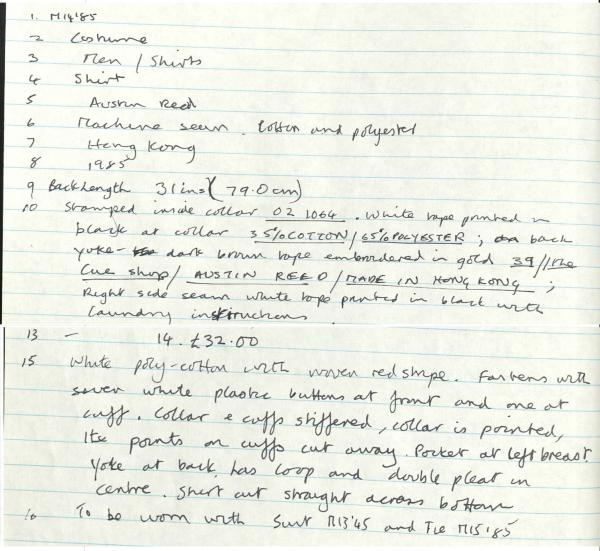 1. M14'85
2 Costume
3 Men / Shirts
4 Shirt
5 Austin Reed
6 Machine sewn. Cotton and polyester
7 Hong Kong
8 1985
9 Back Length 31ins (79.0cm)
10 Stamped inside collar 02 1064. White tape printed in
black at collar 35%COTTON/65%POLYESTER; back
yoke - dark brown tape embroidered in gold 39//The
Cue shop/ AUSTIN REED/MADE IN HONG KONG;
Right side seam white tape printed in black with
Laundry instructions.
13 — 14. £32.00
15 White poly-cotton with woven red stripe. Fastens with
seven white plastic buttons at front and one at
cuff. Collar & cuffs stiffened, collar is pointed,
the points on cuffs cut away. Pocket at left breast.
Yoke at back has loop and double pleat in
centre. Shirt cut straight across bottom
16 To be worn with Suit M13'45 and Tie M15'85